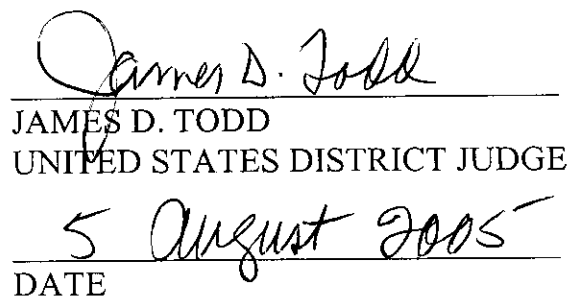 James D. Todd
JAMES D. TODD
UNITED STATES DISTRICT JUDGE
5 August 2005
DATE